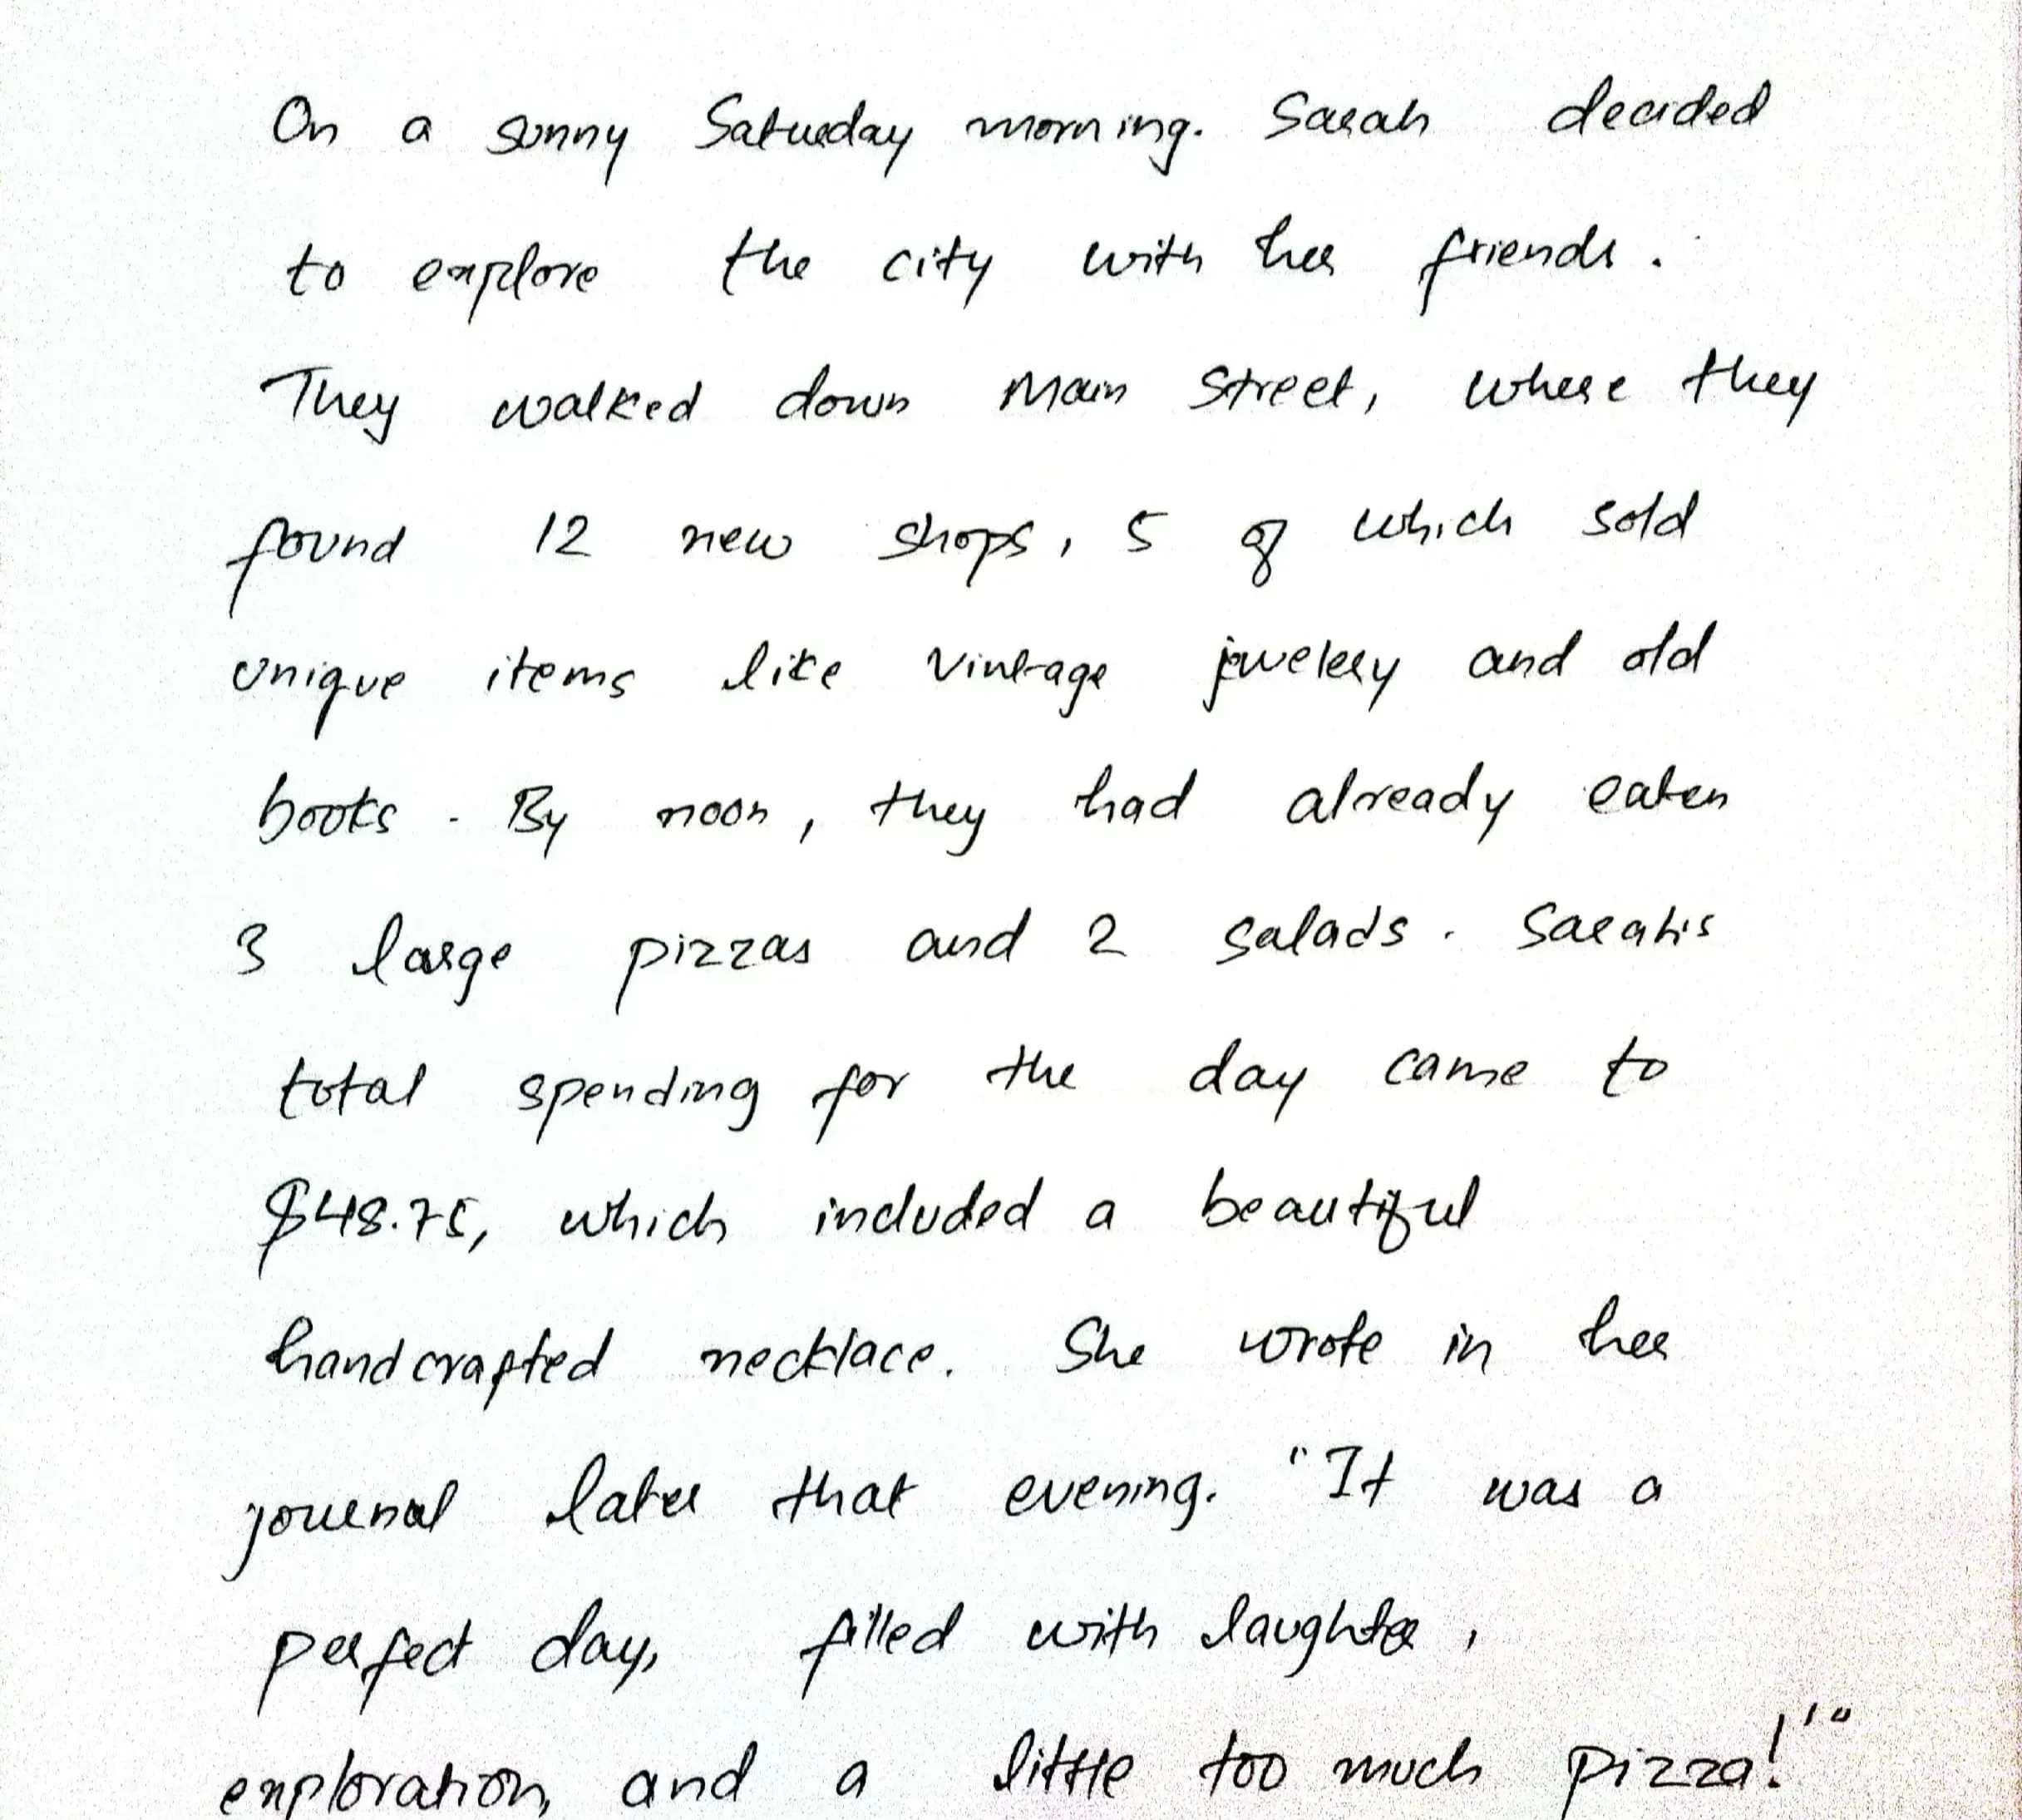 On a sunny Saturday morning. Sarah decided
to explore the city with her friends.
They walked down Main Street, where they
found 12 new shops, 5 of which sold
unique items like vintage jewelry and old
books. By noon, they had already eaten
3 large pizzas and 2 salads. Sarah's
total spending for the day came to
$48.75, which included a beautiful
handcrafted necklace. She wrote in her
journal later that evening. "It was a
perfect day, filled with laughter,
exploration, and a little too much pizza!'"